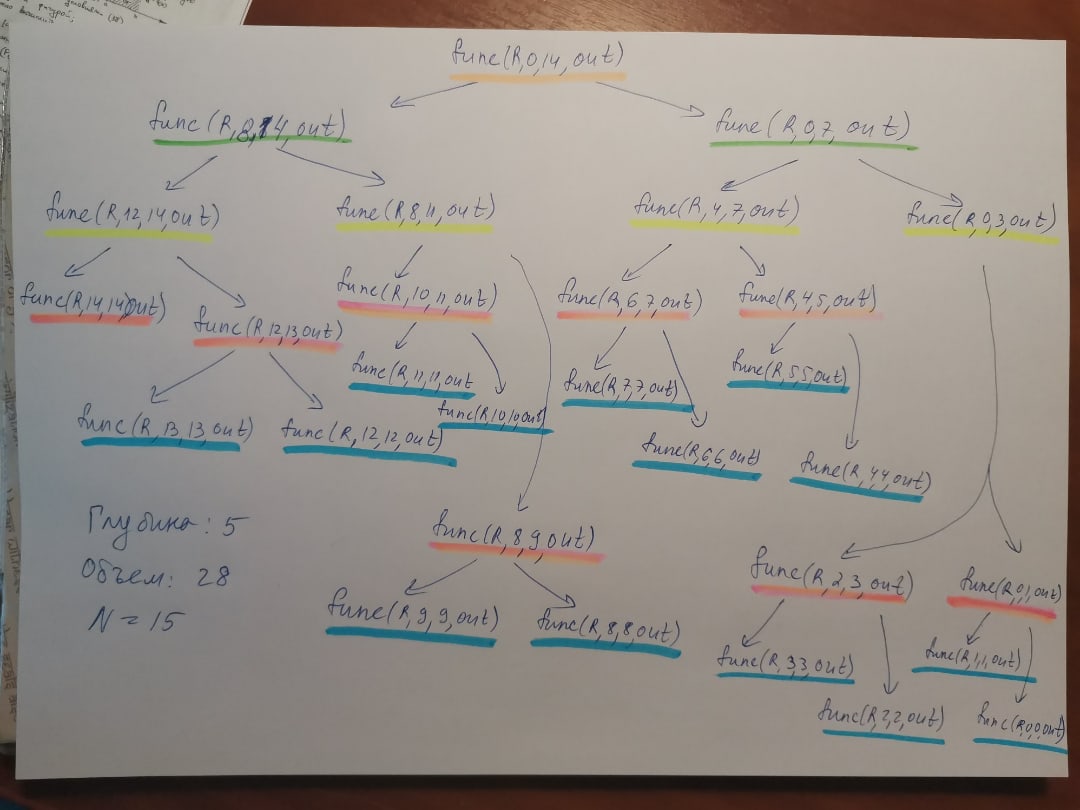 func(R,0,14,out)
func(R,8,14,out)
func(R,0,7,out)
func(R,12,14,out)
func(R,8,11,out)
func(R,4,7,out)
func(R,0,3,out)
func(R,14,14,out)
func(R,12,13,out)
func(R,10,11,out)
func(R,6,7,out)
func(R,4,5,out)
func(R,13,13,out)
func(R,12,12,out)
func(R,11,11,out
func(R,10,10,out)
func(R,7,7,out)
func(R,6,6,out)
func(R,5,5,out)
func(R,4,4,out)
func(R,8,9,out)
func(R,2,3,out)
func(R,0,1,out)
func(R,9,9,out)
func(R,8,8,out)
func(R,3,3,out)
func(R,2,2,out)
func(R,1,1,out)
func(R,0,0,out)
Глубина: 5
Объем: 28
N = 15